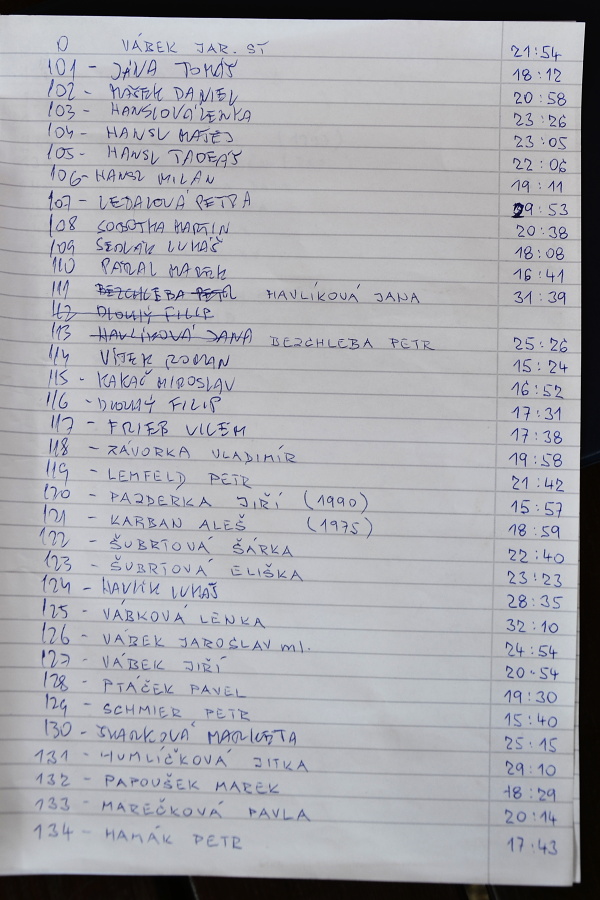 0 VÁBEK JAR. ST 21:54
101 - JÁNA TOMÁŠ 18:12
102 - MAŠEK DANIEL 20:58
103 - HANSLOVÁ LENKA 23:26
104 - HANSL MATĚJ 23:05
105 - HANSL TADEÁŠ 22:06
106 - HANSL MILAN 19:11
107 - LEDAJOVÁ PETRA 29:53
108 SOBOTKA MARTIN 20:38
109 SEDLÁK LUKÁŠ 18:08
110 PATRAL MAREK 16:41
111 BEZCHLEBA PETR HAVLÍKOVÁ JANA 31:39
112 DLOUHÝ FILIP
113 HAVLÍKOVÁ JANA BEZCHLEBA PETR 25:26
114 VÍTEK ROMAN 15:24
115 - KAKAČ MIROSLAV 16:52
116 - DLOUHÝ FILIP 17:31
117 - FRIEB VILEM 17:38
118 - ZÁVORKA VLADIMÍR 19:58
119 - LEMFELD PETR 21:42
120 - PAJDERKA JIŘÍ (1990) 15:57
121 - KARBAN ALEŠ (1975) 18:59
122 - ŠUBRTOVÁ ŠÁRKA 22:40
123 - ŠUBRTOVÁ ELIŠKA 23:23
124 - HAVLÍK LUKÁŠ 28:35
125 - VÁBKOVÁ LENKA 32:10
126 - VÁBEK JAROSLAV ml. 24:54
127 - VÁBEK JIŘÍ 20:54
128 - PTÁČEK PAVEL 19:30
129 - SCHMIER PETR 15:40
130 - MARKÉTA 25:15
131 - HUMLÍČKOVÁ JITKA 29:10
132 - PAPOUŠEK MAREK 18:29
133 - MAREČKOVÁ PAVLA 20:14
134 - HAMÁK PETR 17:43